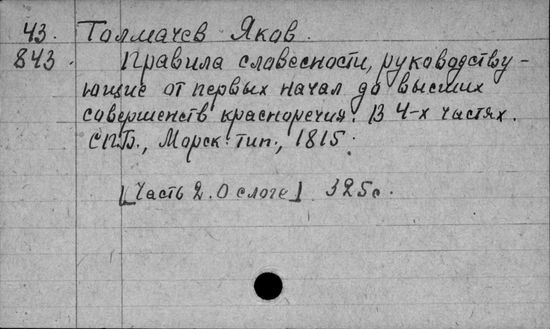 43. Толмачев Яков.
843. Правила словесности, руководству-
ющие от первых начал до высших
совершенств красноречия. В 4-х частях.
СПБ., Морск. тип., 1815.
[Часть 2. О слоге] 325с.